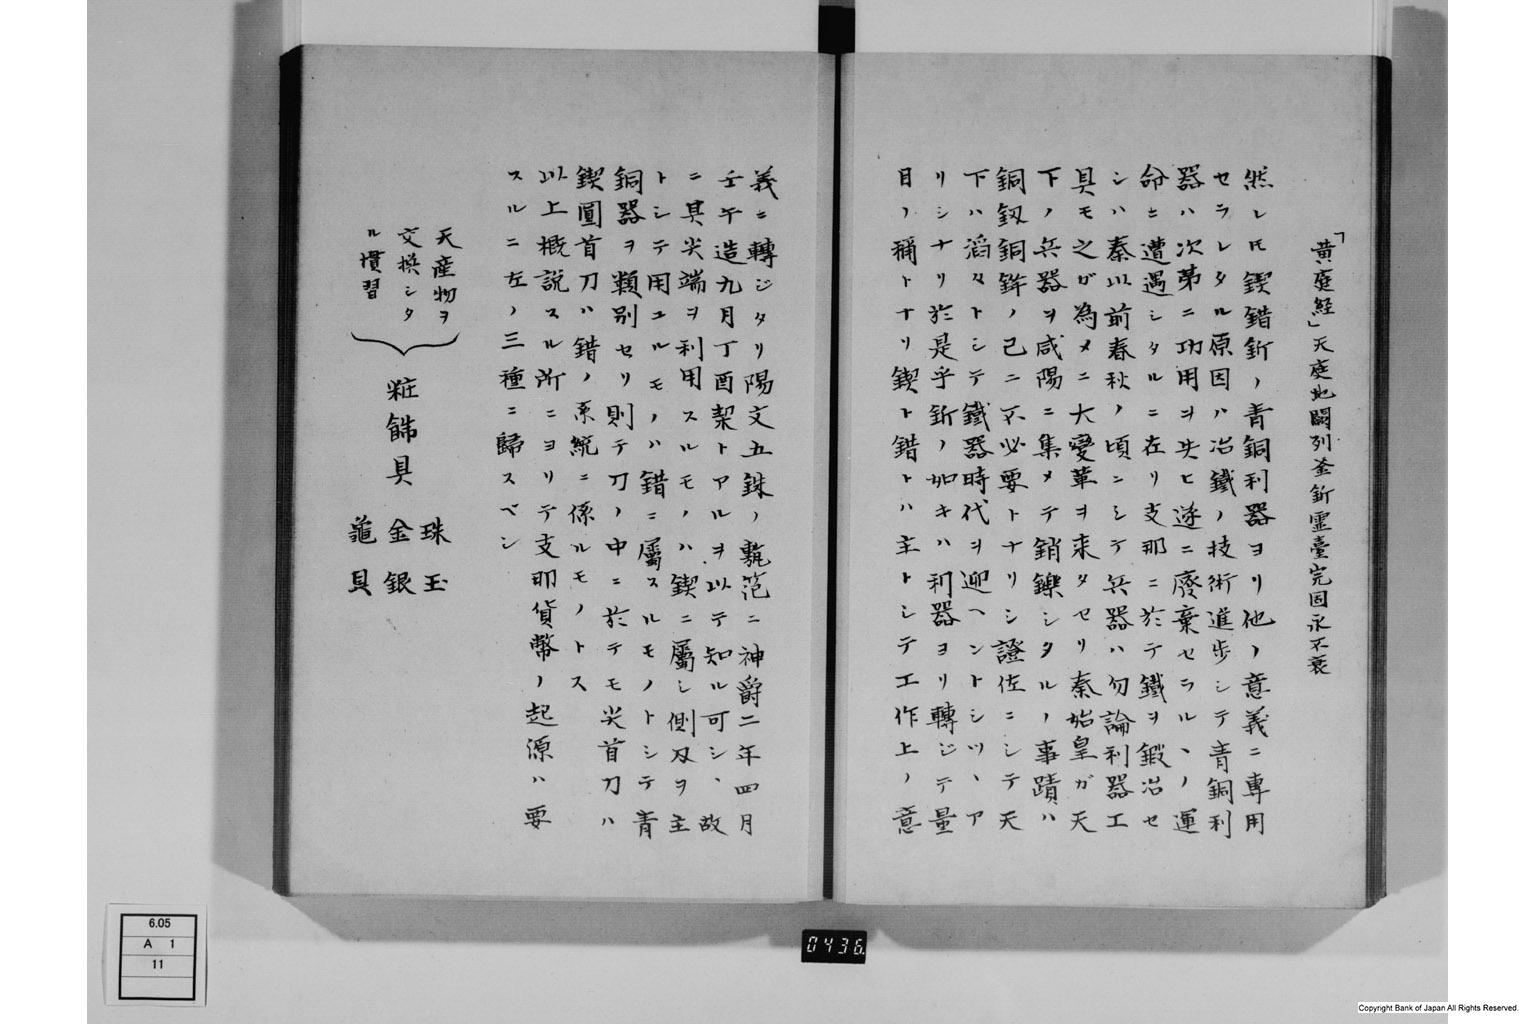 「黄庭経」天庭地關列釜釿霊臺完固永不衰
然レ𪜈鍥錯釿ノ青銅利器ヨリ他ノ意義ニ専用
セラレタル原因ハ冶鐵ノ技術進歩シテ青銅利
器ハ次第ニ功用ヲ失ヒ遂ニ廢棄セラルヽノ運
命ニ遭遇シタルニ在リ支那ニ於テ鐵ヲ鍛冶セ
シハ秦以前春秋ノ頃ニシテ兵器ハ勿論利器工
具モ之ガ為メニ大變革ヲ来タセリ秦始皇ガ天
下ノ兵器ヲ咸陽ニ集メテ銷鑠シタルノ事蹟ハ
銅釼銅鉾ノ已ニ不必要トナリシ證佐ニシテ天
下ハ滔々トシテ鐵器時代ヲ迎ヘントシツヽア
リシナリ於是乎釿ノ如キハ利器ヨリ轉ジテ量
目ノ稱トナリ鍥ト錯トハ主トシテ工作上ノ意
義ニ轉ジタリ陽文五銖ノ甎笵ニ神爵二年四月
壬午造九月丁酉栔トアルヲ以テ知ル可シ、故
ニ其尖端ヲ利用スルモノハ鍥ニ屬シ側刄ヲ主
トシテ用ユルモノハ錯ニ屬スルモノトシテ青
銅器ヲ類別セリ則テ刀ノ中ニ於テモ尖首刀ハ
鍥圓首刀ハ錯ノ系統ニ係ルモノトス
以上概説スル所ニヨリテ支那貨幣ノ起源ハ要
スルニ左ノ三種ニ歸スベシ
天産物ヲ
交換シタ
ル慣習
粧餙具
珠玉
金銀
龜貝
0436
6.05
A 1
11
Copyright Bank of Japan All Rights Reserved.